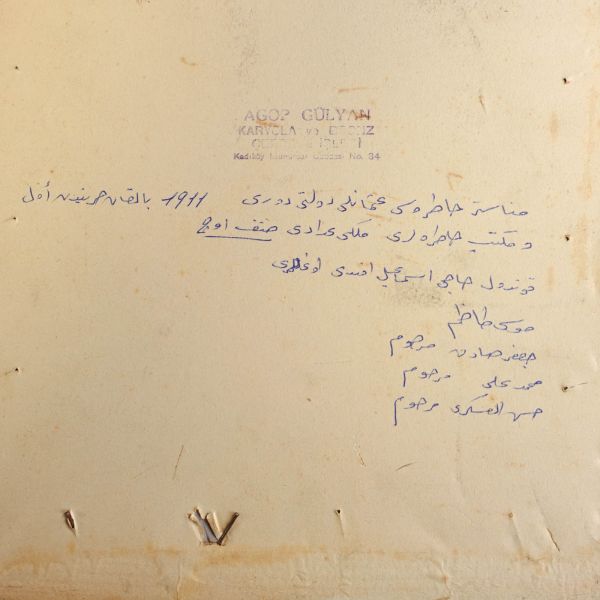 AGOP GÜLYAN
KARYOLA ve
Kadıköy No. 34
مناستر خاطره‌سی عثمانلی دولتی دوری 1911 بالقان حربندن أول
و مکتب خاطره‌لری ملکی عدادی صنف اوچ
حاجی اسماعیل افندی اوغللری
موسی کاظم
جعفر صادق مرحوم
محمد علی مرحوم
حسن العسکری مرحوم